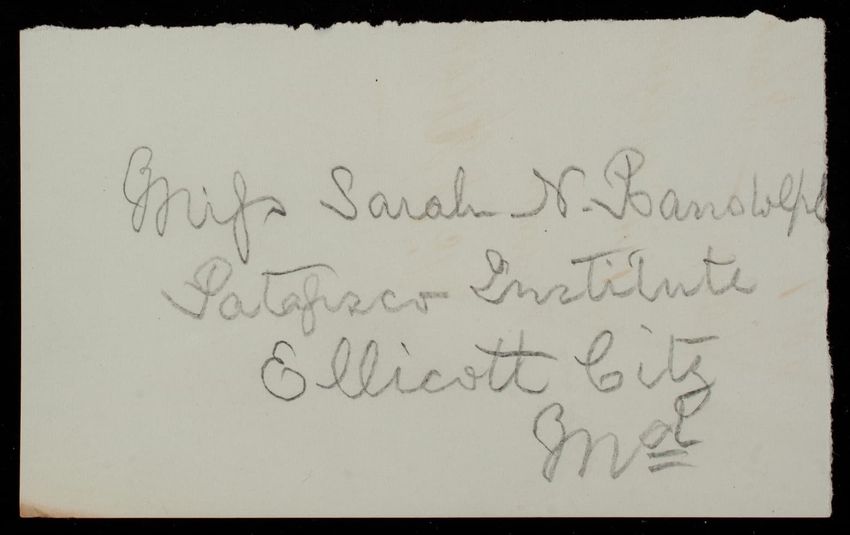 Miss Sarah N. Randolph
Patapsco Institute
Ellicott City
Md